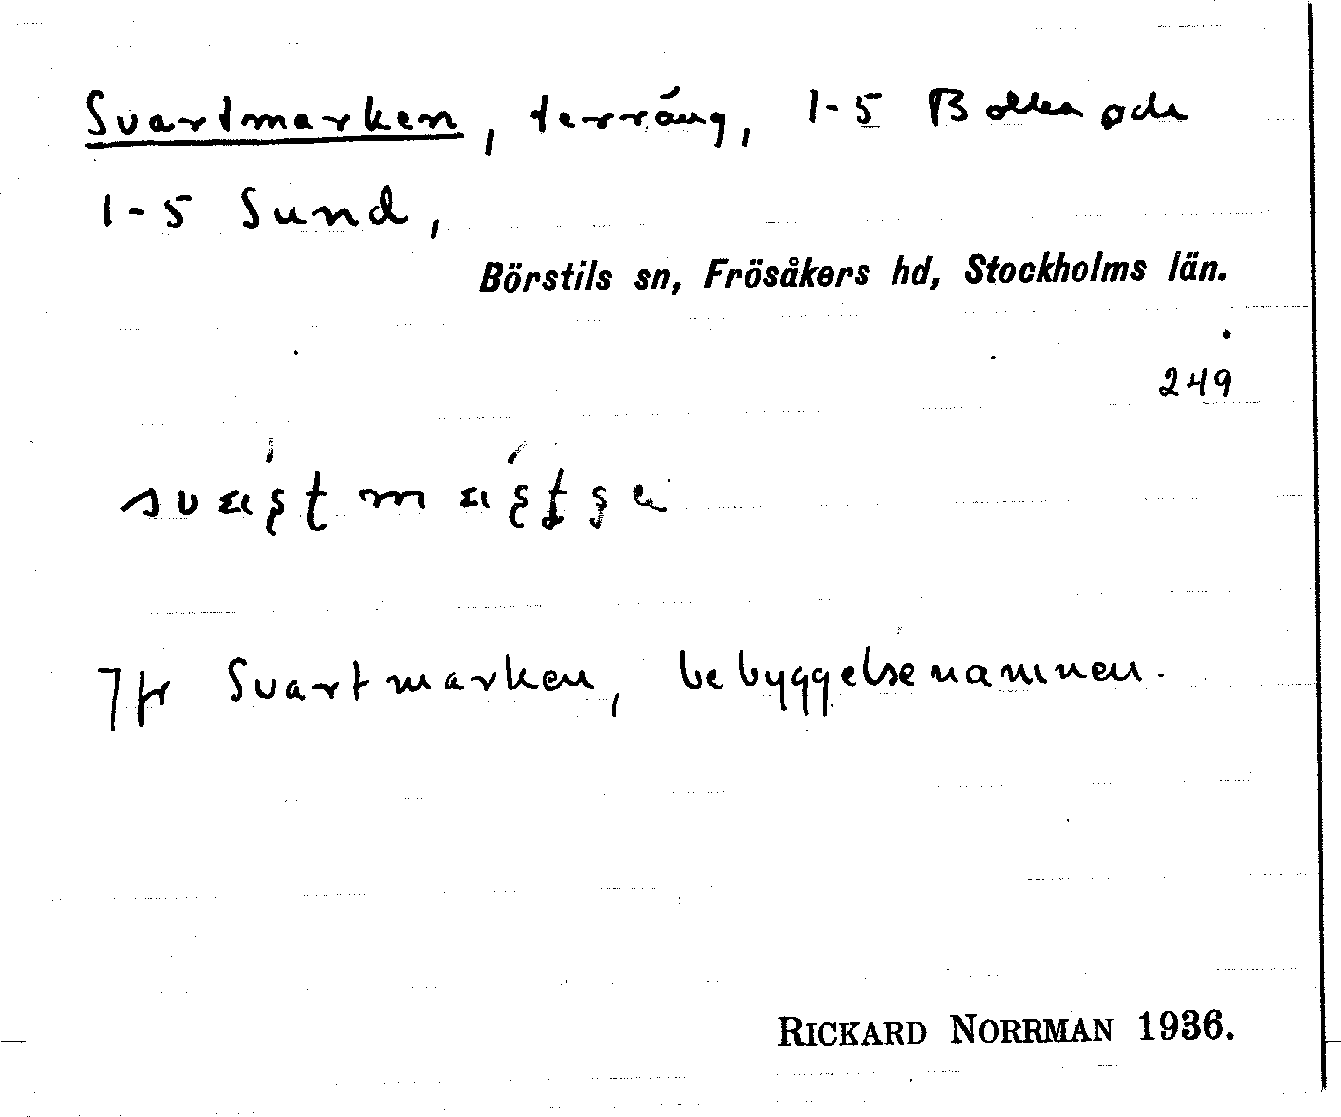 Svartmarken, terräng, 1-5 Bolka och
1-5 Sund,
Börstils sn, Frösåkers hd, Stockholms län.
249
Jfr Svartmarken, bebyggelsenamnen.
RICKARD NORRMAN 1936.